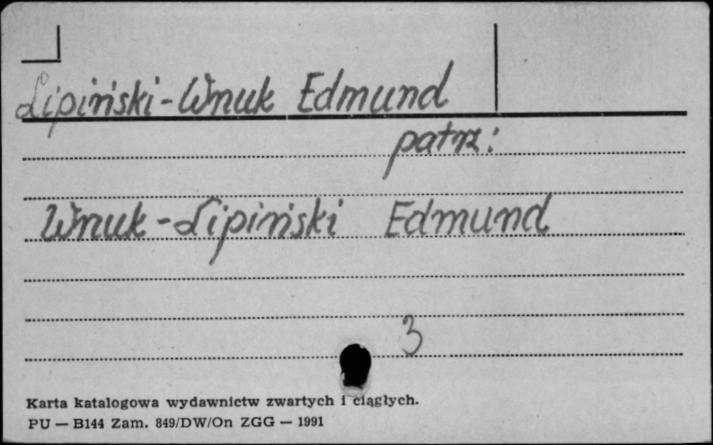 Lipiński-Wnuk Edmund
patrz:
Wnuk-Lipiński Edmund
3
Karta katalogowa wydawnictw zwartych i ciągłych.
PU — B144 Zam. 849/DW/On ZGG — 1991